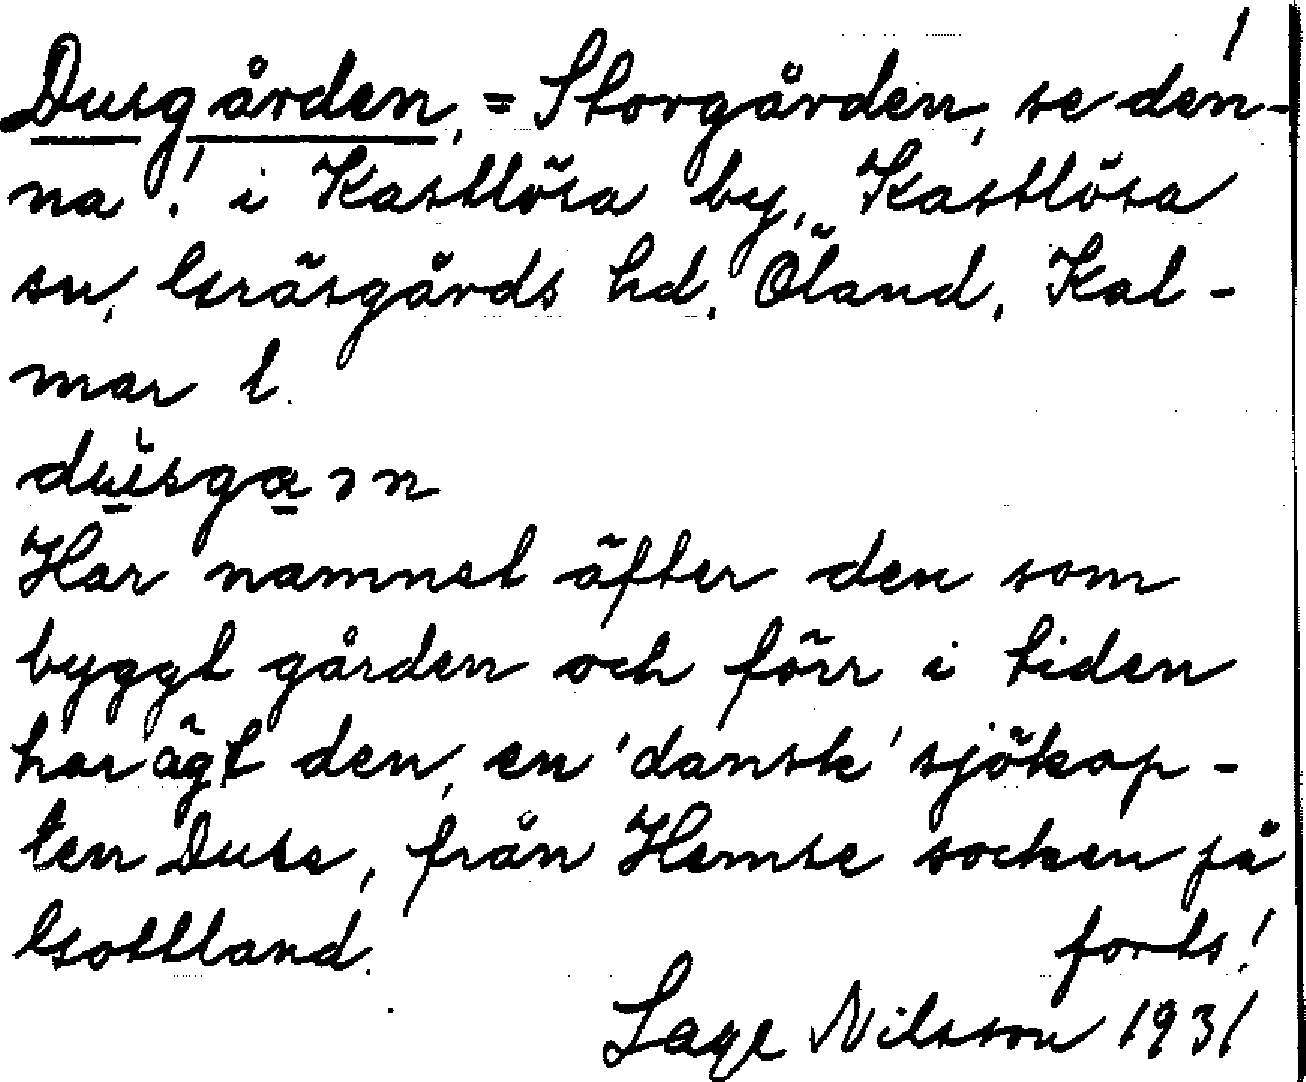 1
Dusgården, = Storgården, se den-
na! i Kastlösa by, Kastlösa
sn, Gräsgårds hd, Öland, Kal-
mar l.
Har namnet äfter den som
byggt gården och förr i tiden
har ägt den, en 'dansk' sjökap-
ten Duse, från Hemse socken på
Gottland. forts!
Lage Nilsson 1931